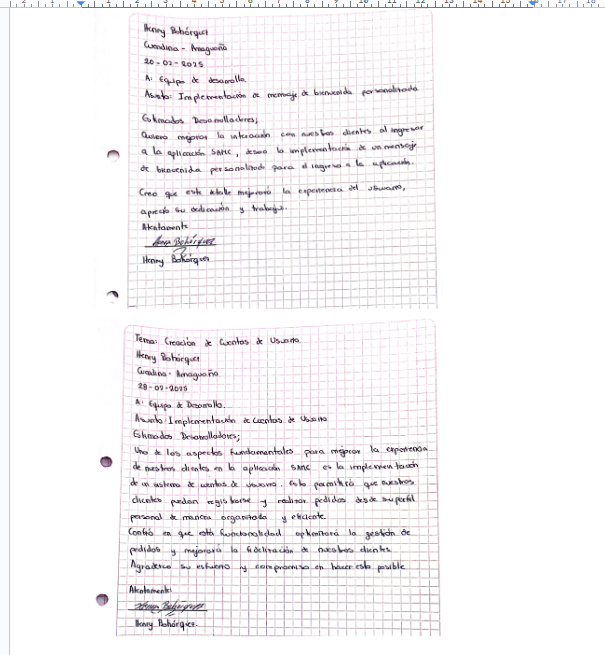 Henry Bohórquez
Cuendina - Amaguaña
20-02-2025
A: Equipo de desarrollo.
Asunto: Implementación de mensaje de bienvenida personalizada
Estimados Desarrolladores;
Quiero mejorar la interacción con nuestros clientes al ingresar
a la aplicación SAMC, deseo la implementación de un mensaje
de bienvenida personalizado para el ingreso a la aplicación.
Creo que este detalle mejorará la experiencia del usuario,
aprecio su dedicación y trabajo.
Atentamente
Henry Bohórquez
Tema: Creación de Cuentas de Usuario
Henry Bohórquez
Cuendina - Amaguaña
28-02-2025
A: Equipo de Desarrollo.
Asunto: Implementación de Cuentas de Usuario
Estimados Desarrolladores;
Uno de los aspectos fundamentales para mejorar la experiencia
de nuestros clientes en la aplicación SAMC es la implementación
de un sistema de cuentas de usuario. Esto permitirá que nuestros
clientes puedan registrarse y realizar pedidos desde su perfil
personal de manera organizada y eficiente.
Confió en que está funcionalidad optimizará la gestión de
pedidos y mejorará la fidelización de nuestros clientes.
Agradezco su esfuerzo y compromiso en hacer esto posible
Atentamente
Henry Bohórquez.